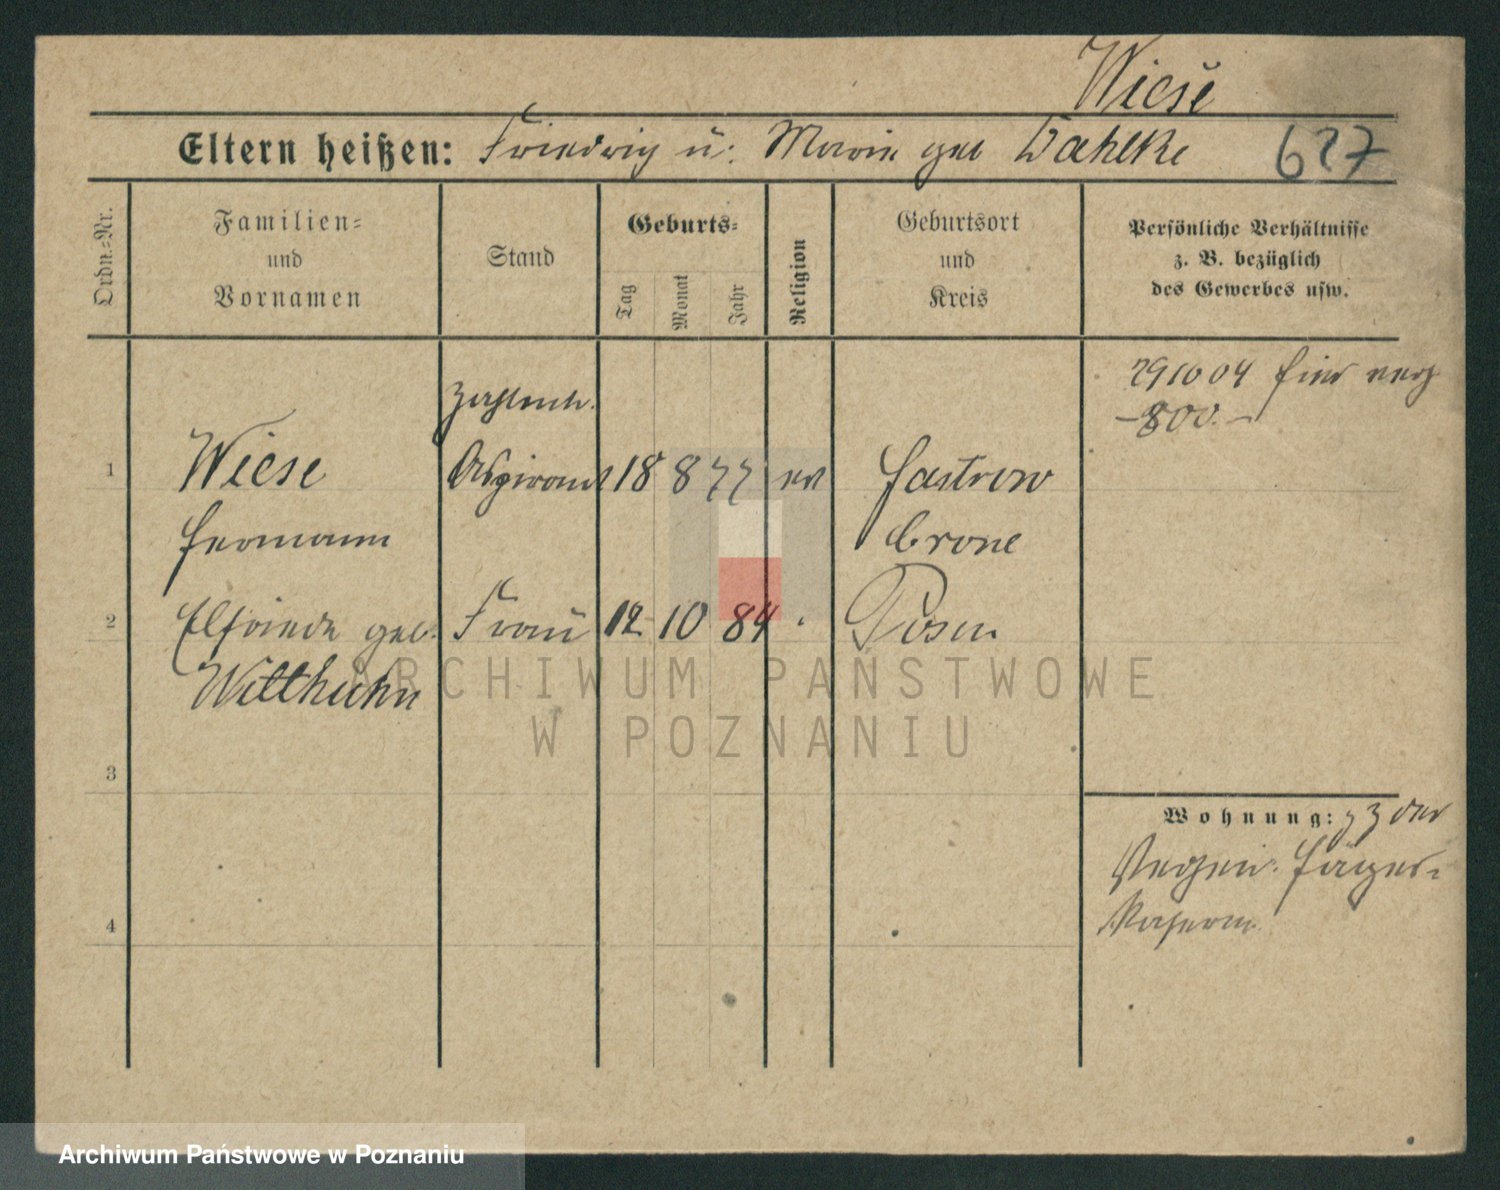 Wiese
Eltern heißen: Friedrich u. Marie geb Dahlke 627
Ordn.-Nr.
Familien-
und
Vornamen
Stand
Geburts-
Tag
Monat
Jahr
Religion
Geburtsort
und
Kreis
Persönliche Verhältnisse
z. B. bezüglich
des Gewerbes usw.
291004 hier
-800.-
Zahlmstr.
1 Wiese Aspirant 18 8 77 ev Jastrow
Hermann Crone
2 Elfriede geb. Frau 12 10 84 Posen
Witthuhn
ARCHIWUM PAŃSTWOWE
W POZNANIU
3
Wohnung:
Jäger-
Kaserne
4
Archiwum Państwowe w Poznaniu